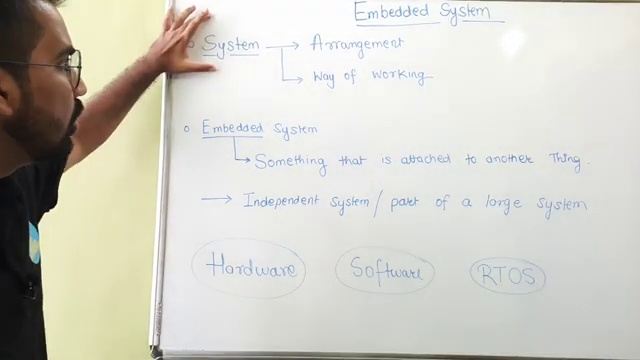 Embedded System
System → Arrangement
Way of Working
Embedded System
Something that is attached to another Thing.
→ Independent System / part of a large System
Hardware Software RTOS